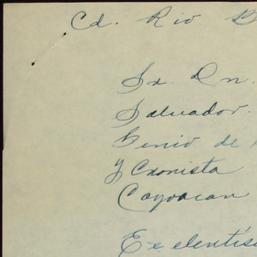 Cd. Rio B
Sr Dn.
Salvador.
Genio de
y Cronista
Coyoacan
Exelentís